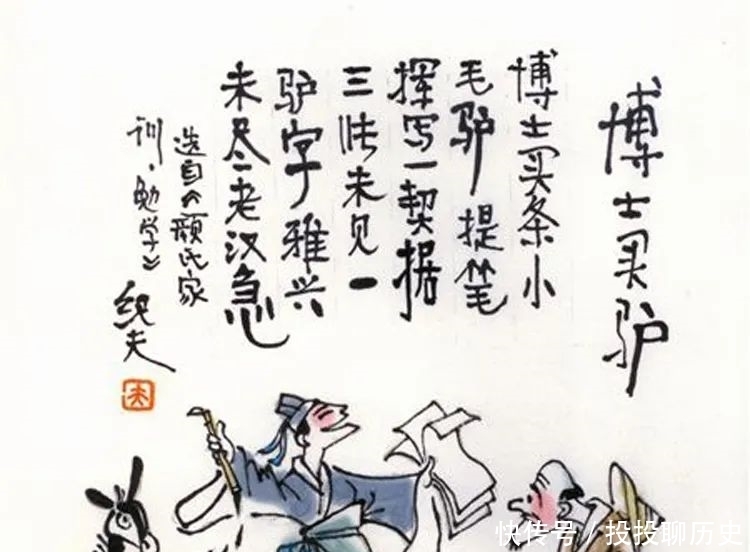 博士买驴
博士买条小
毛驴提笔
挥写一契据
三张未见一
驴字雅兴
未尽老汉急
选自《颜氏家
训·勉学》
快传号/投投聊历史